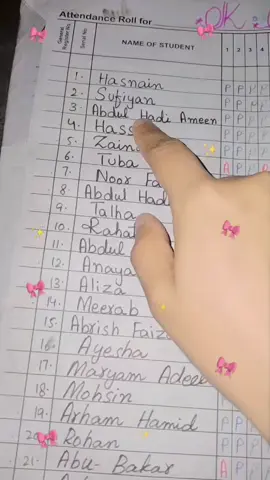 Attendance Roll for
OK
General Register No. Serial No. NAME OF STUDENT 1 2 3 4
1. Hasnain P P
2. Sufiyan P P
3. Abdul Hadi Ameen P P
4. Hass P P
5. Zain
6. Tuba A P A
7. Noor Fa
8. Abdul Had
9. Talha
10. Rahat
11. Abdul
12. Anaya
13. Aliza
14. Meerab
15. Abrish Faiz
16. Ayesha
17. Maryam Adee
18. Mohsin
19. Arham Hamid
20. Rohan
21. Abu-Bakar A P